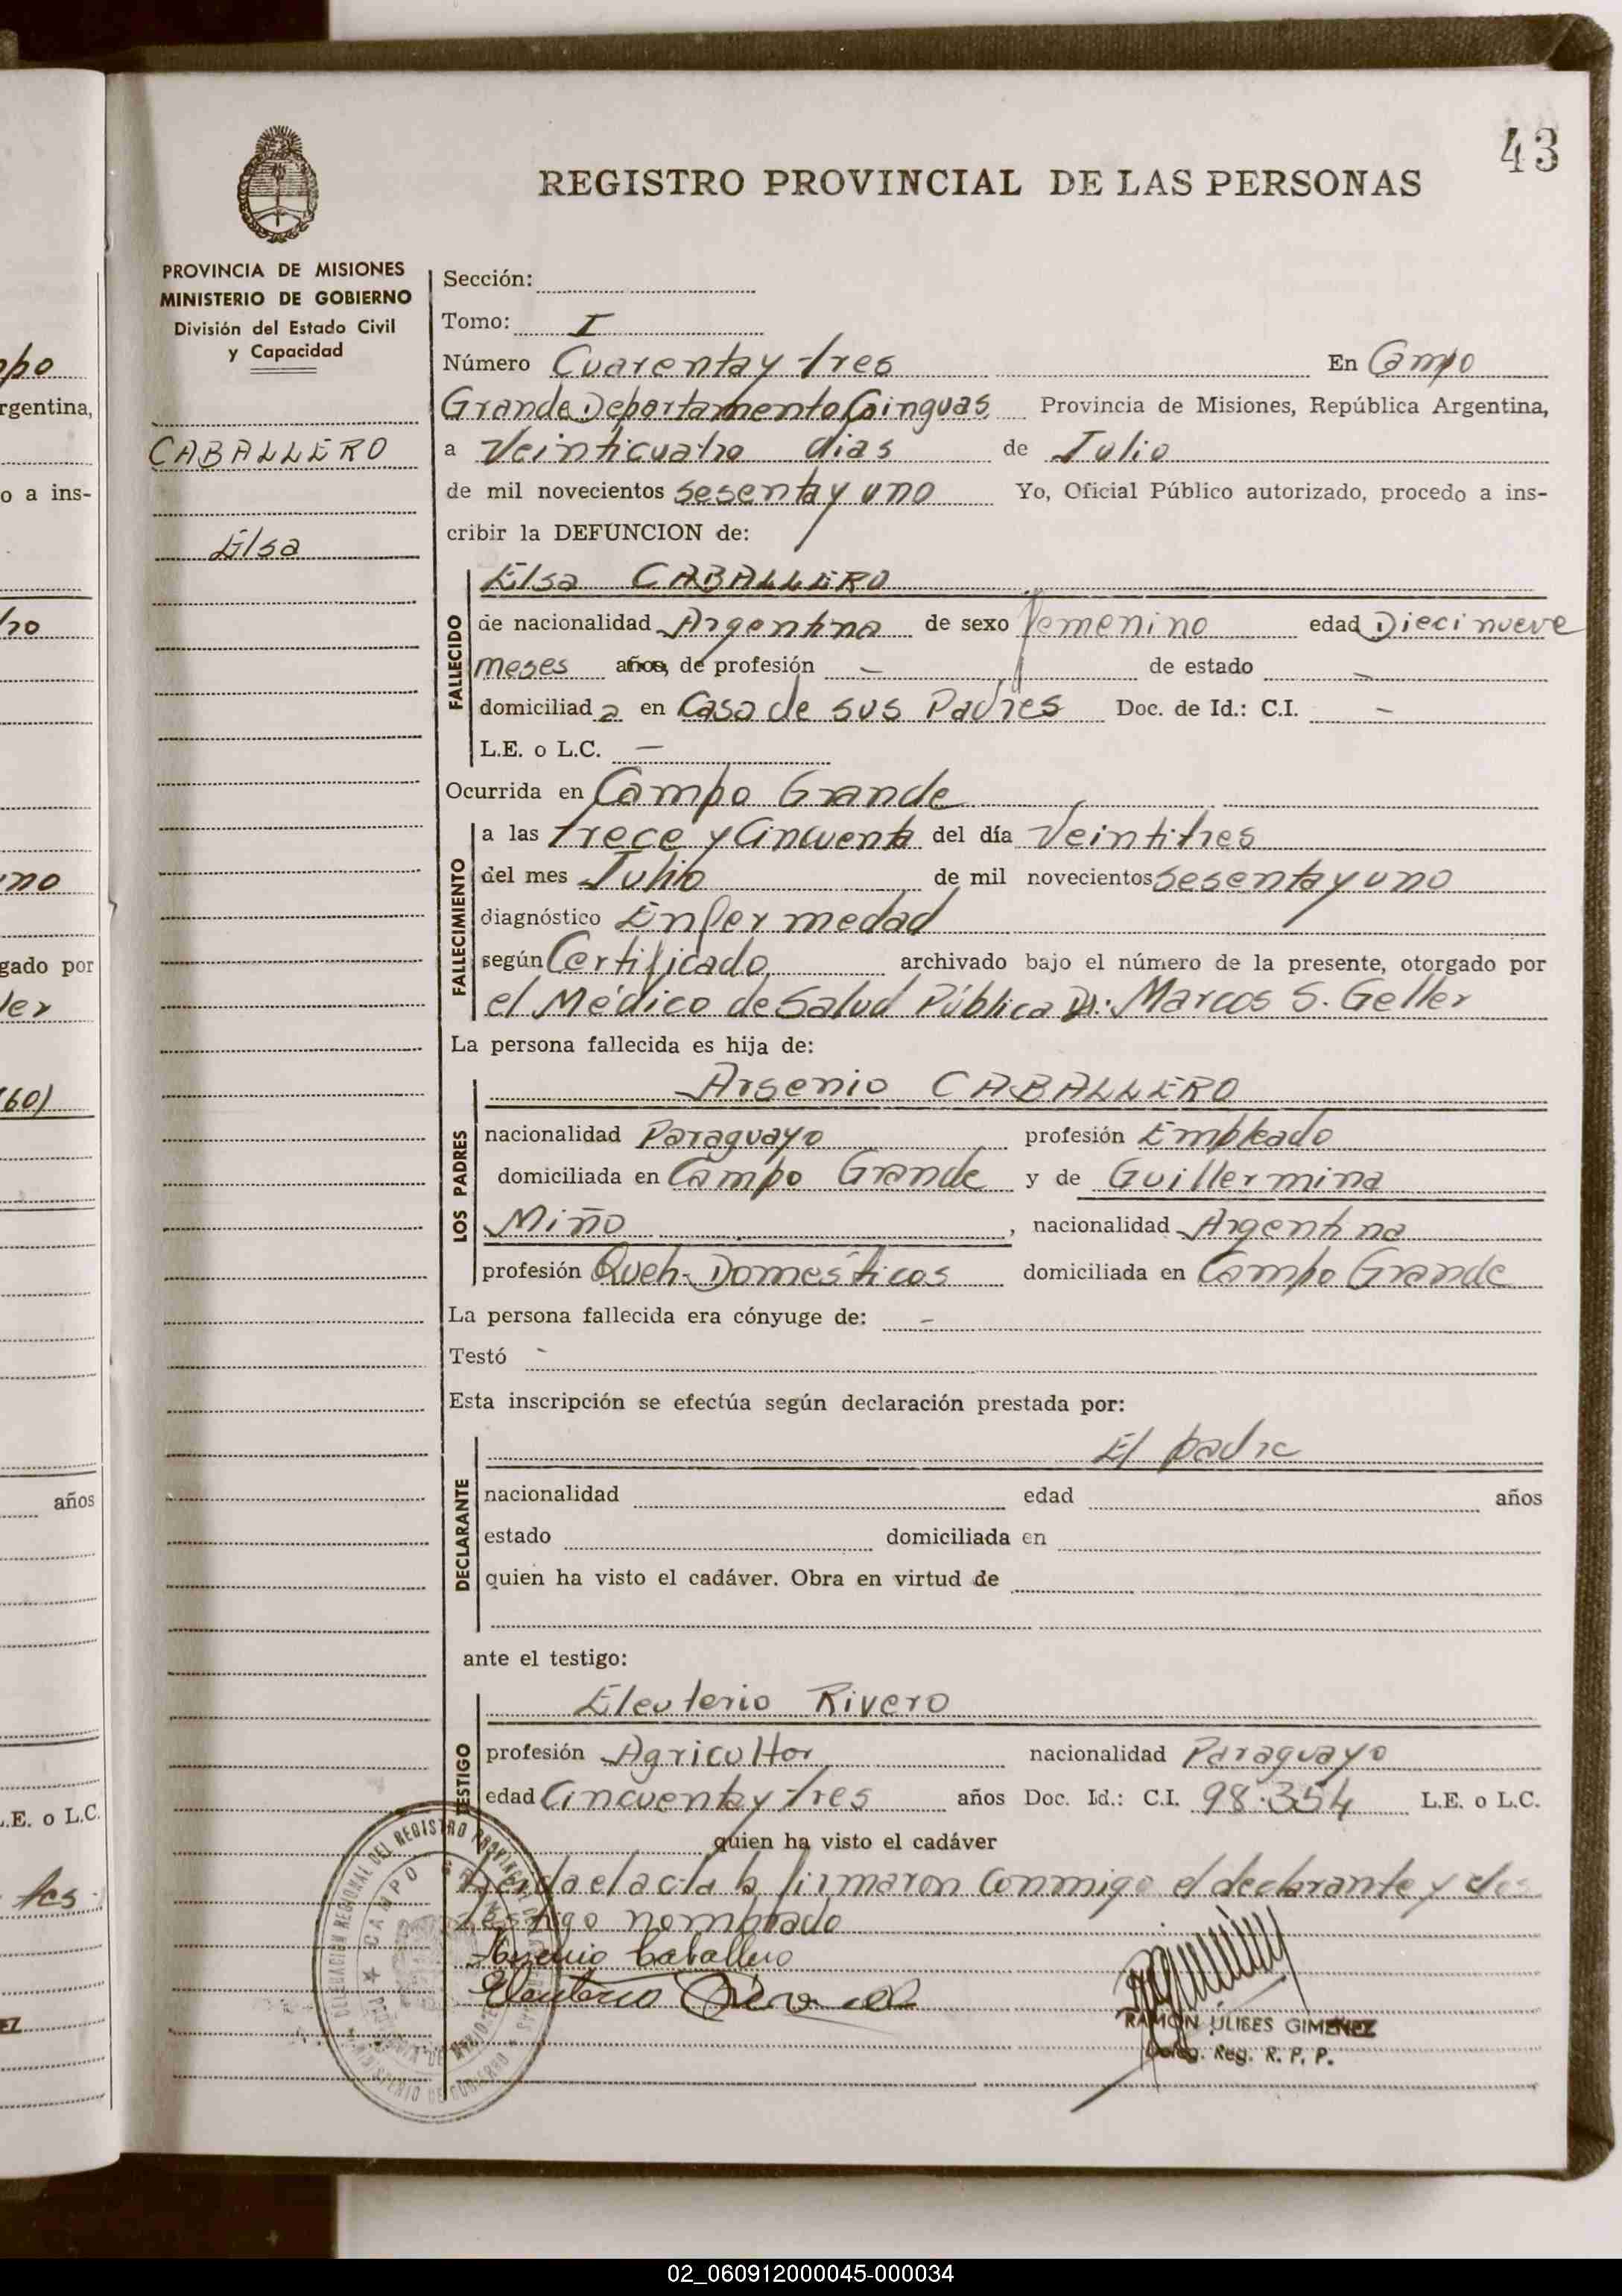 43
REGISTRO PROVINCIAL DE LAS PERSONAS
PROVINCIA DE MISIONES
MINISTERIO DE GOBIERNO
División del Estado Civil
y Capacidad
CABALLERO
Elsa
Sección:
Tomo: I
Número Cuarenta y tres En Campo
Grande Departamento Cainguas Provincia de Misiones, República Argentina,
a Veinticuatro dias de Julio
de mil novecientos sesenta y uno Yo, Oficial Público autorizado, procedo a ins-
cribir la DEFUNCION de:
FALLECIDO
Elsa CABALLERO
de nacionalidad Argentina de sexo femenino edad Diecinueve
meses años, de profesión - de estado -
domiciliada en Casa de sus Padres Doc. de Id.: C.I. -
L.E. o L.C. -
Ocurrida en Campo Grande
FALLECIMIENTO
a las trece y Cincuenta del día Veintitres
del mes Julio de mil novecientos sesenta y uno
diagnóstico Enfermedad
según Certificado, archivado bajo el número de la presente, otorgado por
el Médico de Salud Pública Dr. Marcos S. Geller
La persona fallecida es hija de:
LOS PADRES
Arsenio CABALLERO
nacionalidad Paraguayo profesión Empleado
domiciliada en Campo Grande y de Guillermina
Miño, nacionalidad Argentina
profesión Queh. Domésticos domiciliada en Campo Grande
La persona fallecida era cónyuge de: -
Testó -
Esta inscripción se efectúa según declaración prestada por:
DECLARANTE
El padre
nacionalidad edad años
estado domiciliada en
quien ha visto el cadáver. Obra en virtud de
ante el testigo:
TESTIGO
Eleuterio Rivero
profesión Agricultor nacionalidad Paraguayo
edad Cincuenta y tres años Doc. Id.: C.I. 98.354 L.E. o L.C.
quien ha visto el cadáver
Leida el acta la firmaron Conmigo el declarante y
testigo nombrado
Arsenio Caballero
Eleuterio
RAMON ULISES GIMENEZ
Deleg. Reg. R. P. P.
DELEGACION REGIONAL DEL REGISTRO PROVINCIAL
CAMPO
MINISTERIO DE GOBIERNO
po
rgentina,
o a ins-
no
gado por
ler
60)
años
L.E. o L.C.
02_060912000045-000034